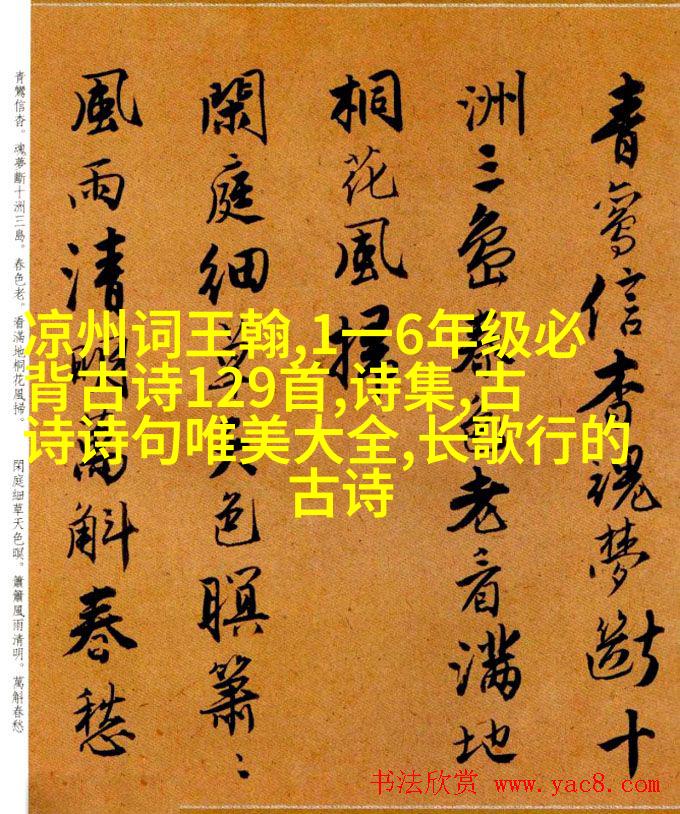 青鸞信杳魂夢斷十
洲三島春色老看滿地
桐花風掃
閑庭細草天色暝簫〻
風雨清明萬斛春愁
青鸞信杳。魂夢斷十洲三島。春色老。看滿地桐花風掃。 閑庭細草天色暝。簫簫風雨清明。萬斛春愁
凉州词王翰,1一6年级必
背古诗129首,诗集,古
诗诗句唯美大全,长歌行的
古诗
书法欣赏 www.yac8.com